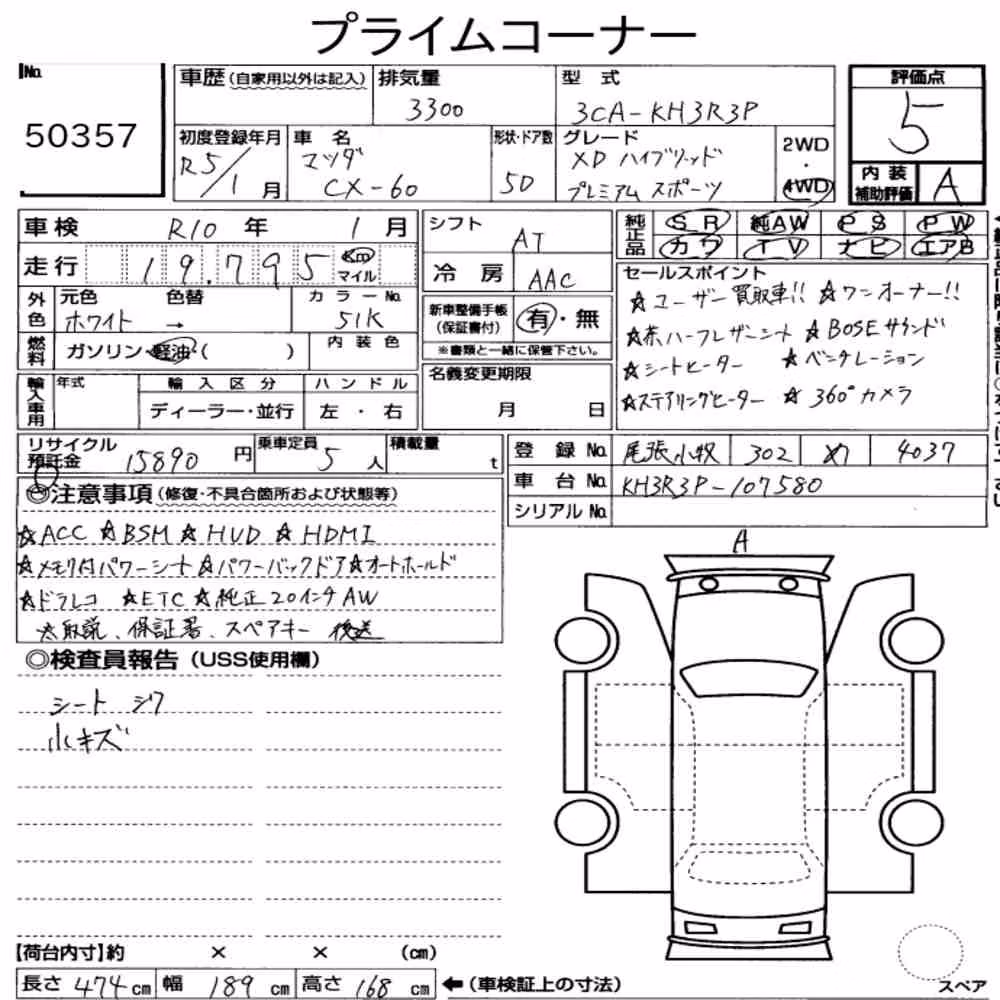 プライムコーナー
No.
50357
車歴 (自家用以外は記入)
排気量
3300
型式
3CA-KH3R3P
評価点
5
初度登録年月
R5/1月
車名
マツダ
CX-60
形状・ドア数
5D
グレード
XD ハイブリッド
プレミアム スポーツ
2WD
・
4WD
内装
補助評価
A
車検 R10年 1月
走行 19.795 Km マイル
シフト AT
冷房 AAC
純正品
SR 純AW PS PW
カワ TV ナビ エアB
外色
元色 色替
ホワイト →
カラーNo.
51K
新車整備手帳
(保証書付)
有・無
※書類と一緒に保管下さい。
燃料
ガソリン・軽油・( )
内装色
セールスポイント
☆ユーザー買取車!! ☆ワンオーナー!!
☆茶ハーフレザーシート ☆BOSEサウンド
☆シートヒーター ☆ベンチレーション
☆ステアリングヒーター ☆360°カメラ
輸入車用
年式
輸入区分
ディーラー・並行
ハンドル
左・右
名義変更期限
月 日
リサイクル
預託金
15890円
乗車定員
5人
積載量
t
登録No. 尾張小牧 302 め 4037
車台No. KH3R3P-107580
シリアルNo.
◎注意事項(修復・不具合箇所および状態等)
☆ACC ☆BSM ☆HUD ☆HDMI
☆メモリ付パワーシート ☆パワーバックドア ☆オートホールド
☆ドラレコ ☆ETC ☆純正20インチAW
☆取説、保証書、スペアキー 後送
◎検査員報告(USS使用欄)
シート シワ
小キズ
A
【荷台内寸】約 × × (cm)
長さ 474cm 幅 189cm 高さ 168cm
←(車検証上の寸法)
スペア